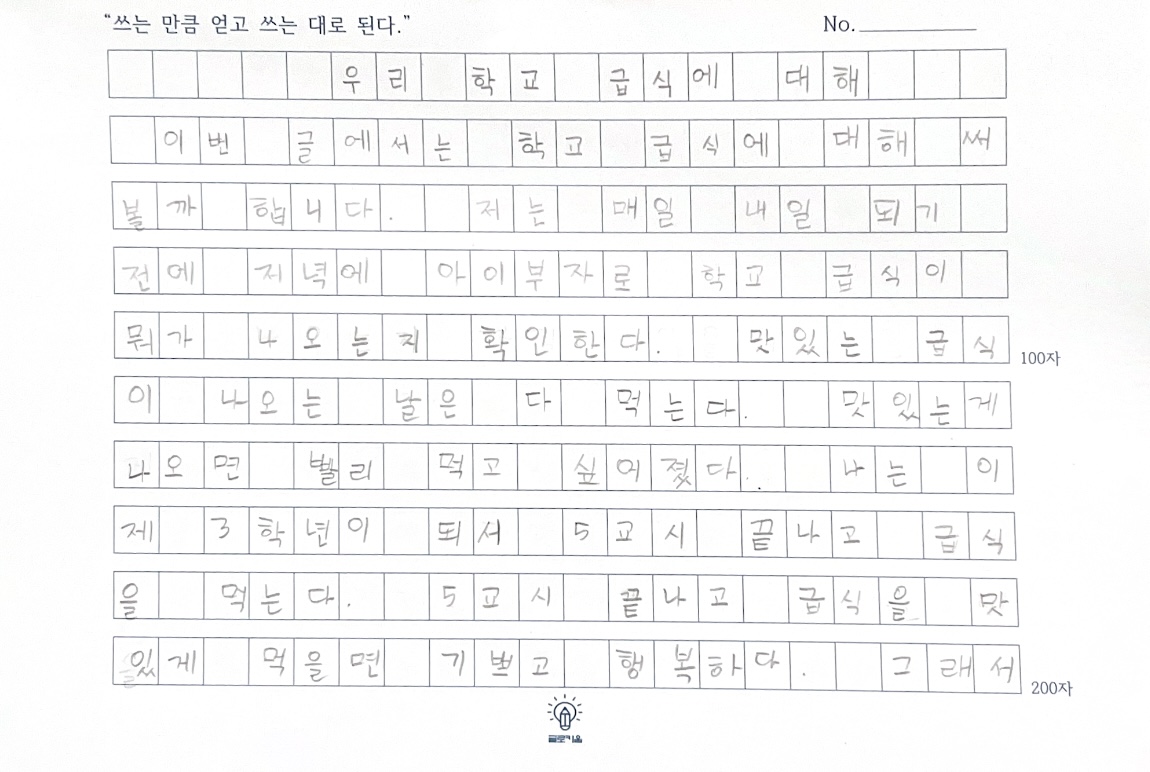 “쓰는 만큼 얻고 쓰는 대로 된다.” No.
우리 학교 급식에 대해
이번 글에서는 학교 급식에 대해 써
볼까 합니다. 저는 매일 내일 되기
전에 저녁에 아이부자로 학교 급식이
뭐가 나오는지 확인한다. 맛있는 급식
100자
이 나오는 날은 다 먹는다. 맛있는게
나오면 빨리 먹고 싶어졌다. 나는 이
제 3학년이 되서 5교시 끝나고 급식
을 먹는다. 5교시 끝나고 급식을 맛
있게 먹을면 기쁘고 행복하다. 그래서
200자
글로키움